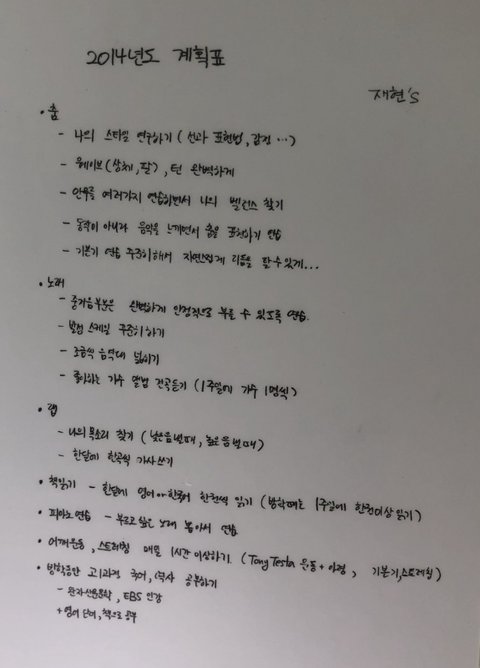 2014년도 계획표
재현's
• 춤
- 나의 스타일 연구하기 (선과 표현법, 감정 …)
- 웨이브 (상체, 팔), 턴 완벽하게
- 안무를 여러가지 연습하면서 나의 벨런스 찾기
- 동작이 아니라 음악을 느끼면서 춤을 표현하기 연습
- 기본기 연습 꾸준히해서 자연스럽게 리듬을 탈 수 있게...
• 노래
- 중저음부분은 완벽하게 안정적으로 부를 수 있도록 연습.
- 발성 스케일 꾸준히하기
- 조금씩 음역대 넓히기
- 좋아하는 가수 앨범 전곡듣기 (1주일에 가수 1명씩)
• 랩
- 나의 목소리 찾기 (낮은음 낼때, 높은음 낼때)
- 한달에 한곡씩 가사쓰기
• 책읽기 - 한달에 영어 or 한국어 한권씩 읽기 (방학때는 1주일에 한권이상 읽기)
• 피아노 연습 - 부르고 싶은 노래 뽑아서 연습
• 어깨운동, 스트레칭 매일 1시간 이상하기. (Tony Testa 운동 + 아령, 기본기, 스트레칭)
• 방학동안 고1과정 국어, 역사 공부하기
- EBS 인강
+ 영어 단어, 책으로 공부